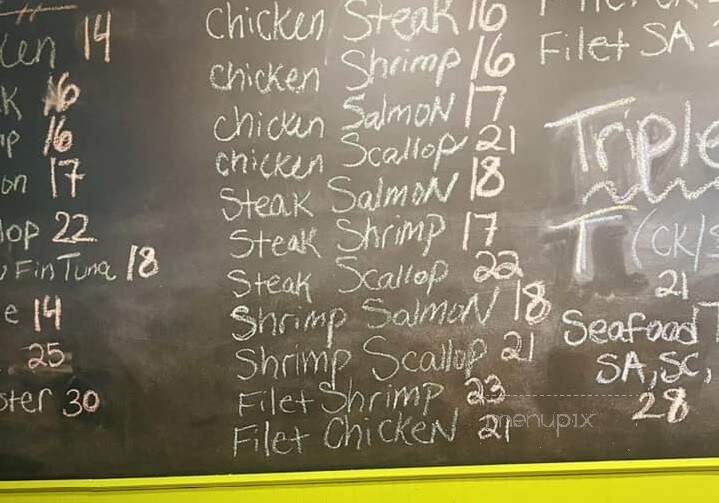 14
16
16
on 17
lop 22
Fin Tuna 18
e 14
25
ster 30
chicken Steak 16
chicken Shrimp 16
chicken Salmon 17
chicken Scallop 21
Steak Salmon 18
Steak Shrimp 17
Steak Scallop 22
Shrimp Salmon 18
Shrimp Scallop 21
Filet Shrimp 23
Filet Chicken 21
Filet SA
Triple
T (CK/S
21
Seafood T
SA, SC,
28
menupix